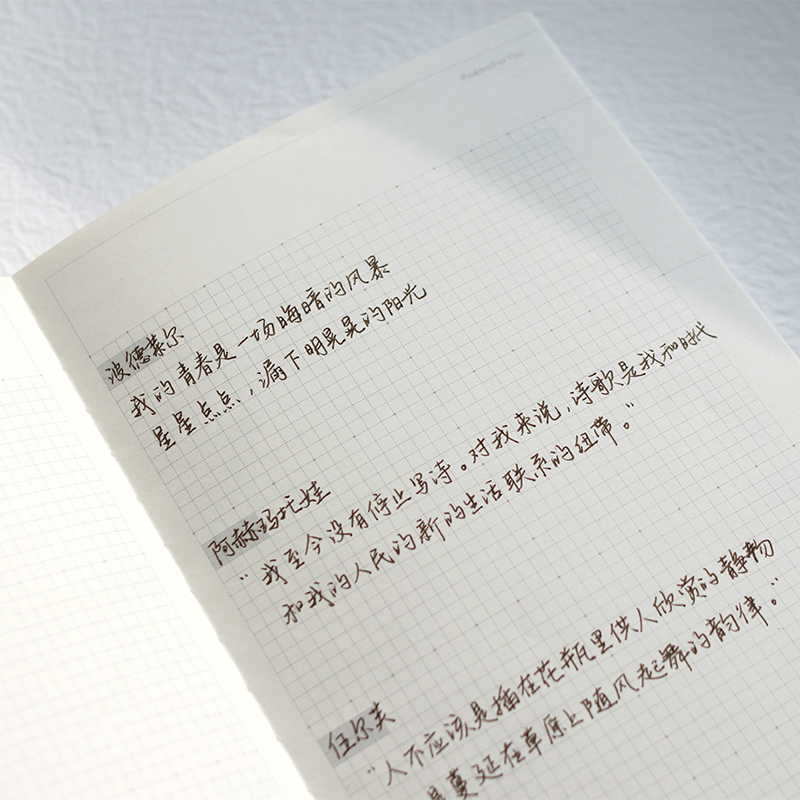 波德莱尔
我的青春是一场晦暗的风暴
星星点点，漏下明晃晃的阳光
阿赫玛托娃
“我至今没有停止写诗。对我来说，诗歌是我和时代
和我的人民的新的生活联系的纽带。”
伍尔芙
“人不应该是插在花瓶里供人欣赏的静物
是蔓延在草原上随风起舞的韵律。”